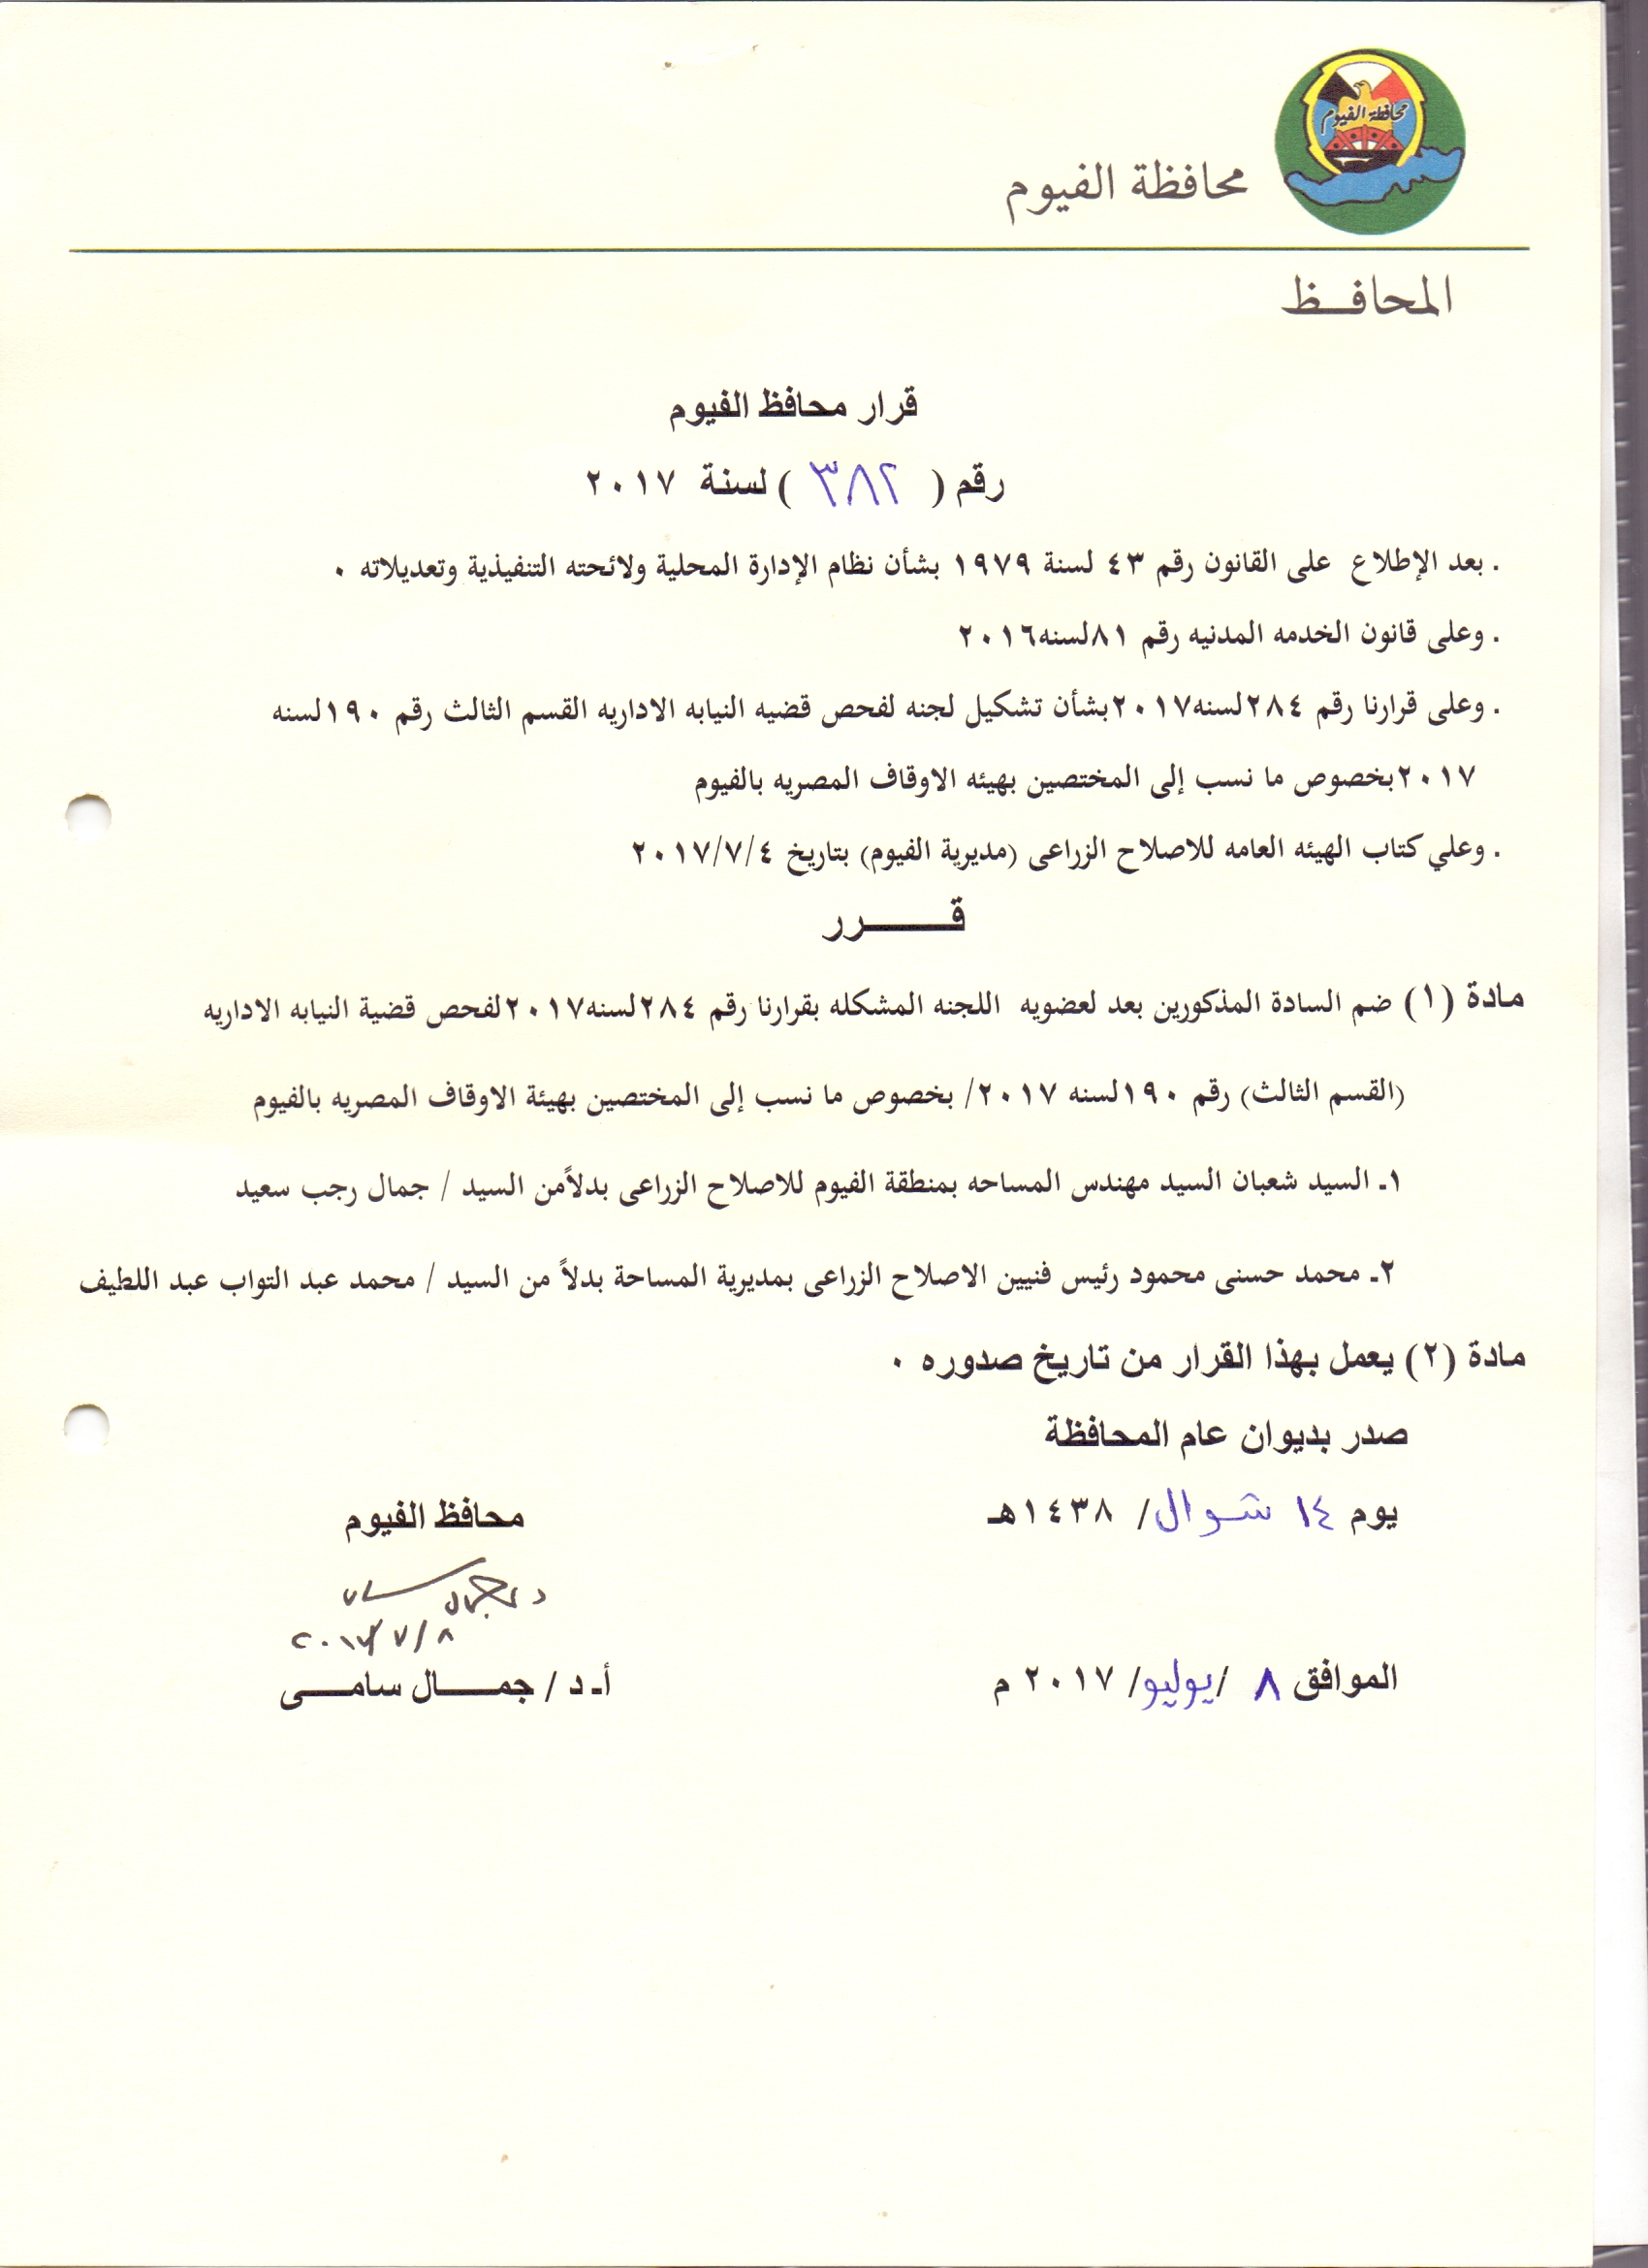 محافظة الفيوم
محافظة الفيوم
المحافـــظ
قرار محافظ الفيوم
رقم ( ٣٨٢ ) لسنة ٢٠١٧
. بعد الإطلاع على القانون رقم ٤٣ لسنة ١٩٧٩ بشأن نظام الإدارة المحلية ولائحته التنفيذية وتعديلاته ٠
. وعلى قانون الخدمه المدنيه رقم ٨١لسنه٢٠١٦
. وعلى قرارنا رقم ٢٨٤لسنه٢٠١٧بشأن تشكيل لجنه لفحص قضيه النيابه الاداريه القسم الثالث رقم ١٩٠لسنه
٢٠١٧بخصوص ما نسب إلى المختصين بهيئه الاوقاف المصريه بالفيوم
. وعلي كتاب الهيئه العامه للاصلاح الزراعى (مديرية الفيوم) بتاريخ ٢٠١٧/٧/٤
قــــــــرر
مادة (١) ضم السادة المذكورين بعد لعضويه اللجنه المشكله بقرارنا رقم ٢٨٤لسنه٢٠١٧لفحص قضية النيابه الاداريه
(القسم الثالث) رقم ١٩٠لسنه ٢٠١٧/ بخصوص ما نسب إلى المختصين بهيئة الاوقاف المصريه بالفيوم
١ـ السيد شعبان السيد مهندس المساحه بمنطقة الفيوم للاصلاح الزراعى بدلاًمن السيد / جمال رجب سعيد
٢ـ محمد حسنى محمود رئيس فنيين الاصلاح الزراعى بمديرية المساحة بدلاً من السيد / محمد عبد التواب عبد اللطيف
مادة (٢) يعمل بهذا القرار من تاريخ صدوره ٠
صدر بديوان عام المحافظة
يوم ١٤ شوال/ ١٤٣٨هـ
محافظ الفيوم
د. جمال سامى
٢٠١٧/٧/٨
الموافق ٨ /يوليو/ ٢٠١٧ م
أـ د / جمــــــال سامــــــى